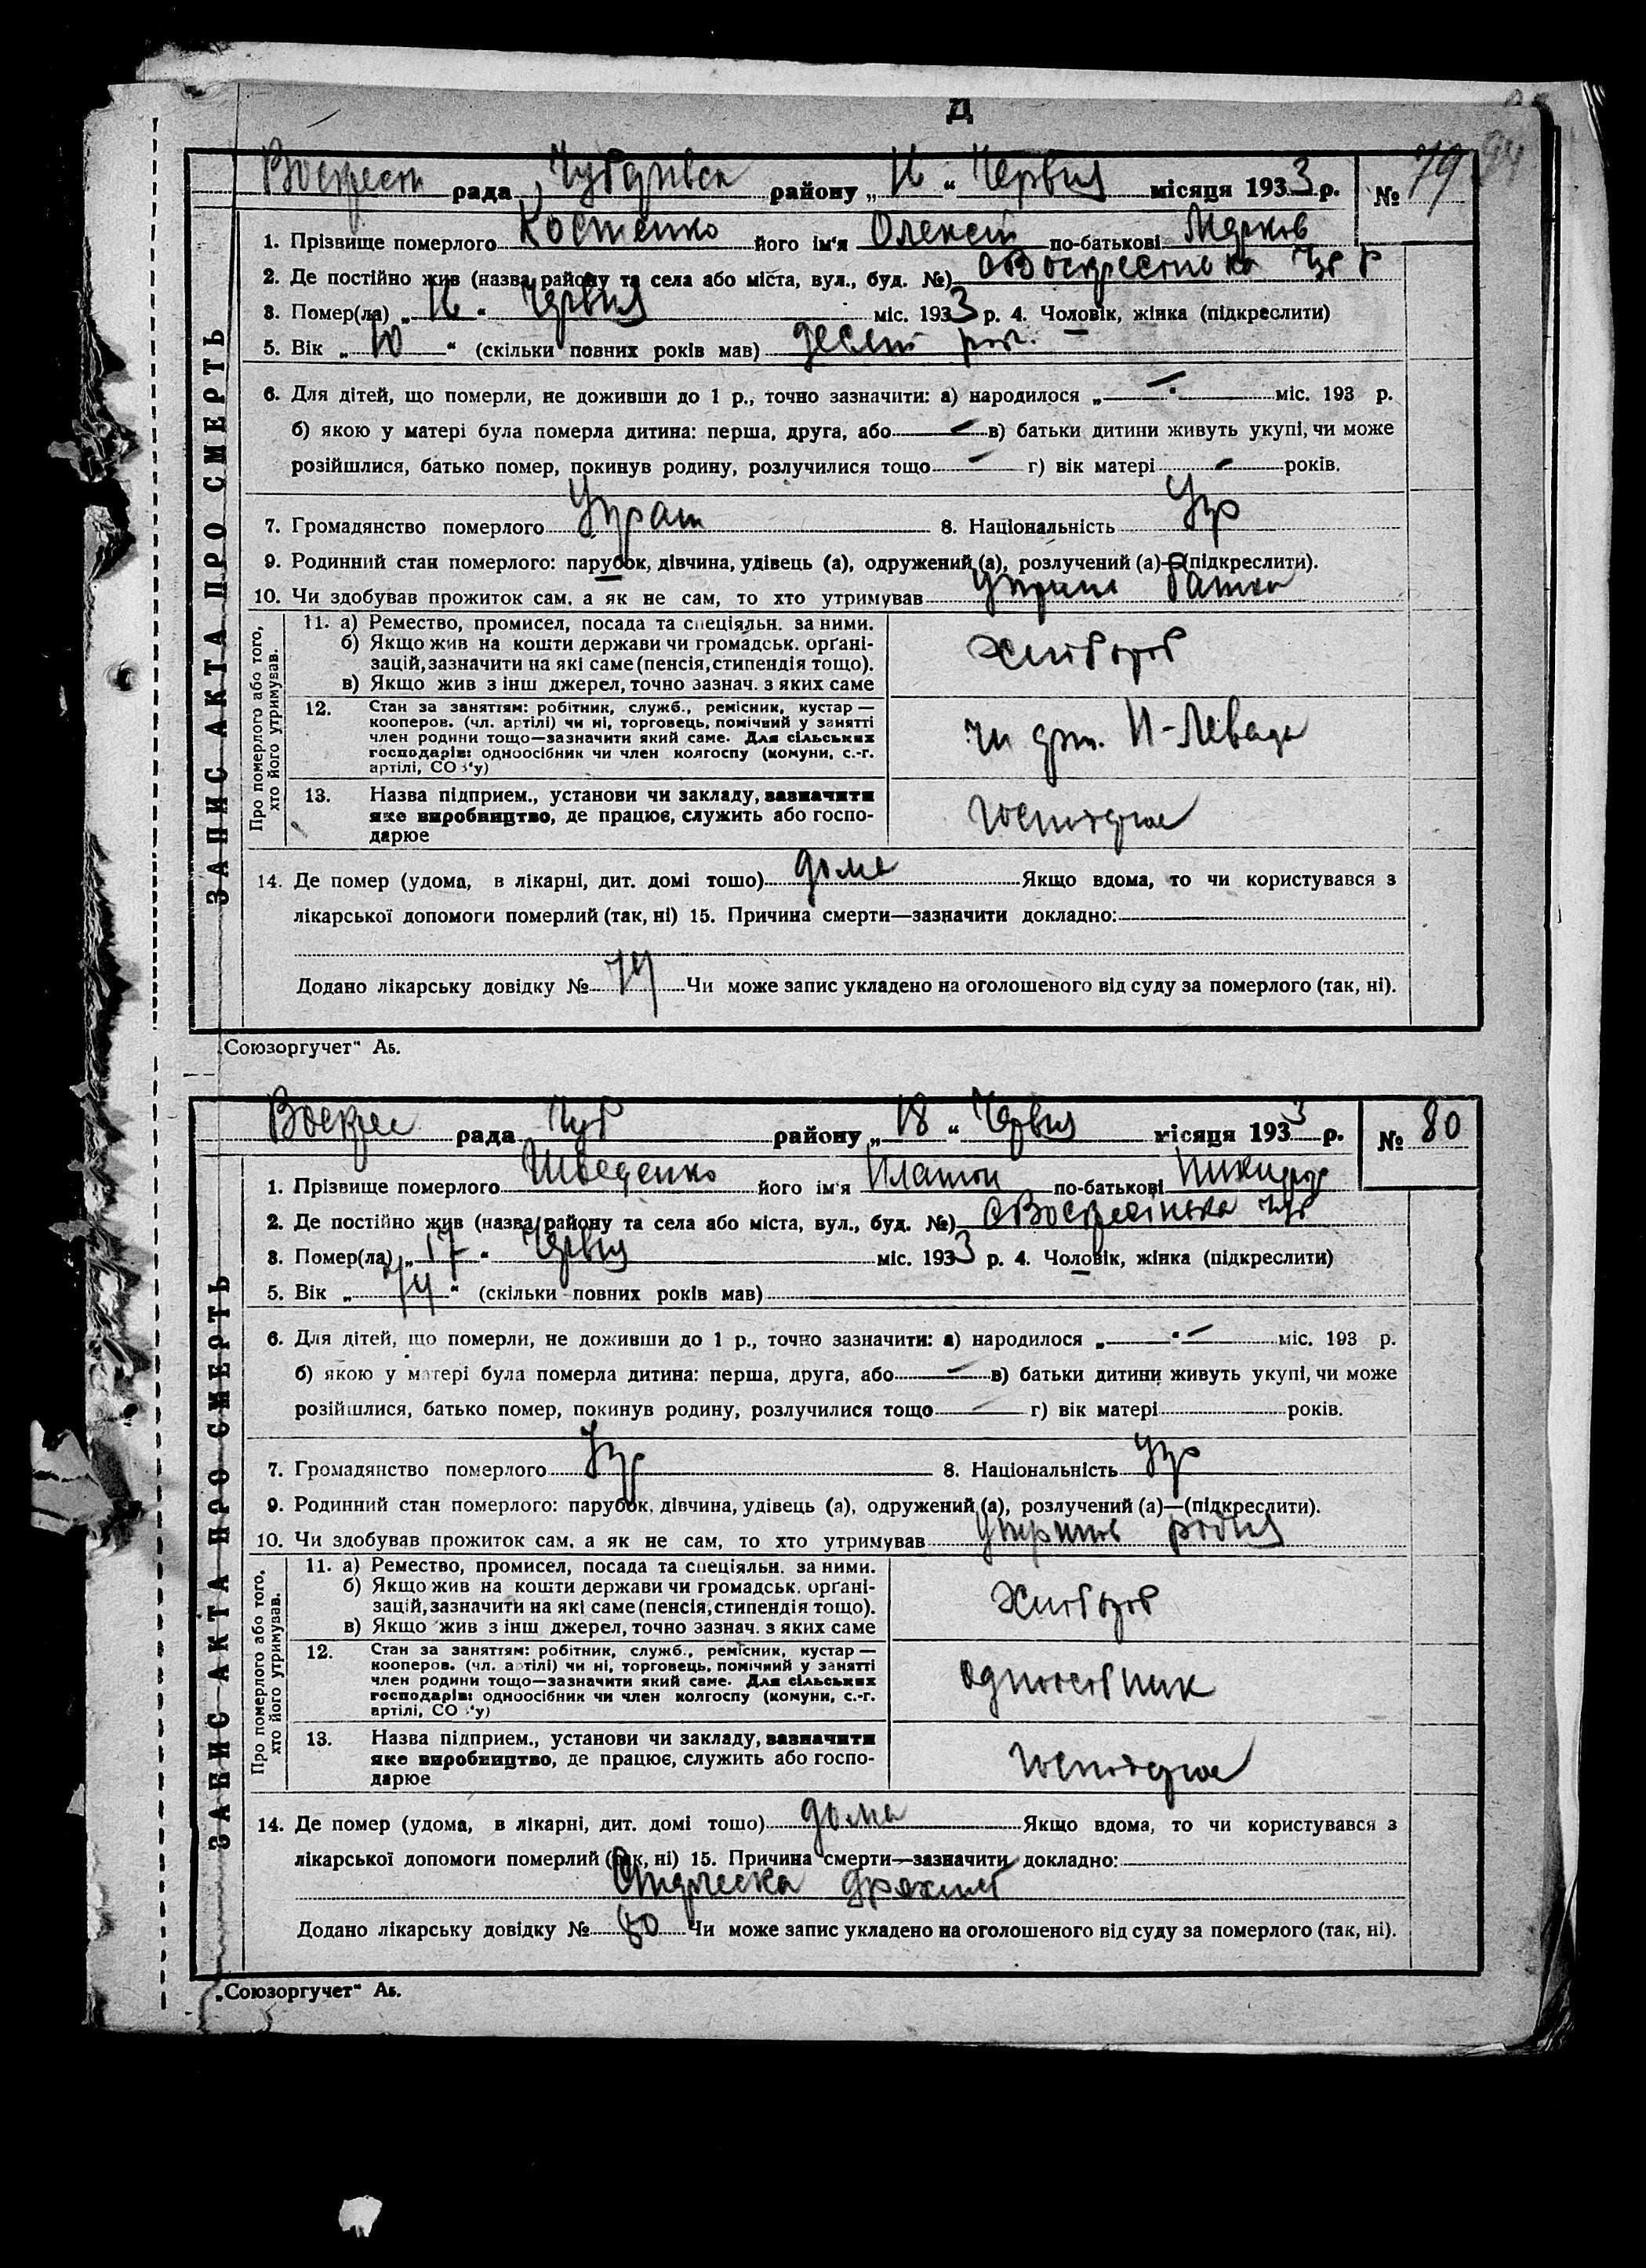 Д
94
ЗАПИС АКТА ПРО СМЕРТЬ
Воскресн рада Чубарівск району „16“ Червня місяця 1933 р. № 79
1. Прізвище померлого Костенко його ім'я Олексій по-батькові Марков
2. Де постійно жив (назва району та села або міста, вул., буд. №) с Воскресенька Чуб р
3. Помер(ла) „16“ Червня міс. 1933 р. 4. Чоловік, жінка (підкреслити)
5. Вік „10“ (скільки повних років мав) десять рок.
6. Для дітей, що померли, не доживши до 1 р., точно зазначити: а) народилося „—“ міс. 193 р.
б) якою у матері була померла дитина: перша, друга, або — в) батьки дитини живуть укупі, чи може
розійшлися, батько помер, покинув родину, розлучилися тощо — г) вік матері — років.
7. Громадянство померлого Украт 8. Національність Укр
9. Родинний стан померлого: парубок, дівчина, удівець (а), одружений (а), розлучений (а)—(підкреслити).
10. Чи здобував прожиток сам, а як не сам, то хто утримував батько
Про померлого або того, хто його утримував.
11. а) Ремество, промисел, посада та спеціяльн. за ними.
б) Якщо жив на кошти держави чи громадськ. органі-
зацій, зазначити на які саме (пенсія, стипендія тощо).
в) Якщо жив з інш джерел, точно зазнач. з яких саме
хлібороб
12. Стан за заняттям: робітник, служб., ремісник, кустар —
кооперов. (чл. артілі) чи ні, торговець, помічний у занятті
член родини тощо—зазначити який саме. Для сільських
господарів: одноосібник чи член колгоспу (комуни, с.-г.
артілі, СОЗ'у)
чл арт. Н-Левада
13. Назва підприєм., установи чи закладу, зазначити
яке виробництво, де працює, служить або госпо-
дарює
господарює
14. Де помер (удома, в лікарні, дит. домі тощо) дома Якщо вдома, то чи користувався з
лікарської допомоги померлий (так, ні) 15. Причина смерти—зазначити докладно:
Додано лікарську довідку № 79 Чи може запис укладено на оголошеного від суду за померлого (так, ні).
„Союзоргучет“ Аб.
ЗАПИС АКТА ПРО СМЕРТЬ
Воскрес рада Чуб району „18“ Червня місяця 1933 р. № 80
1. Прізвище померлого Шведенко його ім'я Платон по-батькові Никифор
2. Де постійно жив (назва району та села або міста, вул., буд. №) с Воскресенька Чуб
3. Помер(ла) „17“ Червня міс. 1933 р. 4. Чоловік, жінка (підкреслити)
5. Вік „74“ (скільки повних років мав)
6. Для дітей, що померли, не доживши до 1 р., точно зазначити: а) народилося „—“ міс. 193 р.
б) якою у матері була померла дитина: перша, друга, або — в) батьки дитини живуть укупі, чи може
розійшлися, батько помер, покинув родину, розлучилися тощо — г) вік матері років.
7. Громадянство померлого Укр 8. Національність Укр
9. Родинний стан померлого: парубок, дівчина, удівець (а), одружений (а), розлучений (а)—(підкреслити).
10. Чи здобував прожиток сам, а як не сам, то хто утримував
Про померлого або того, хто його утримував.
11. а) Ремество, промисел, посада та спеціяльн. за ними.
б) Якщо жив на кошти держави чи громадськ. органі-
зацій, зазначити на які саме (пенсія, стипендія тощо).
в) Якщо жив з інш джерел, точно зазнач. з яких саме
хлібороб
12. Стан за заняттям: робітник, служб., ремісник, кустар —
кооперов. (чл. артілі) чи ні, торговець, помічний у занятті
член родини тощо—зазначити який саме. Для сільських
господарів: одноосібник чи член колгоспу (комуни, с.-г.
артілі, СОЗ'у)
одноособник
13. Назва підприєм., установи чи закладу, зазначити
яке виробництво, де працює, служить або госпо-
дарює
господарює
14. Де помер (удома, в лікарні, дит. домі тощо) дома Якщо вдома, то чи користувався з
лікарської допомоги померлий (так, ні) 15. Причина смерти—зазначити докладно:
Старческа дряхлость
Додано лікарську довідку № 80 Чи може запис укладено на оголошеного від суду за померлого (так, ні).
„Союзоргучет“ Аб.